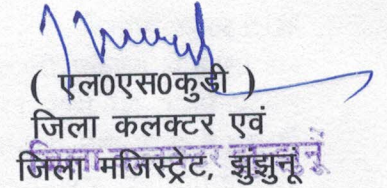 ( एल0एस0कुडी )
जिला कलक्टर एवं
जिला मजिस्ट्रेट, झुझुनू